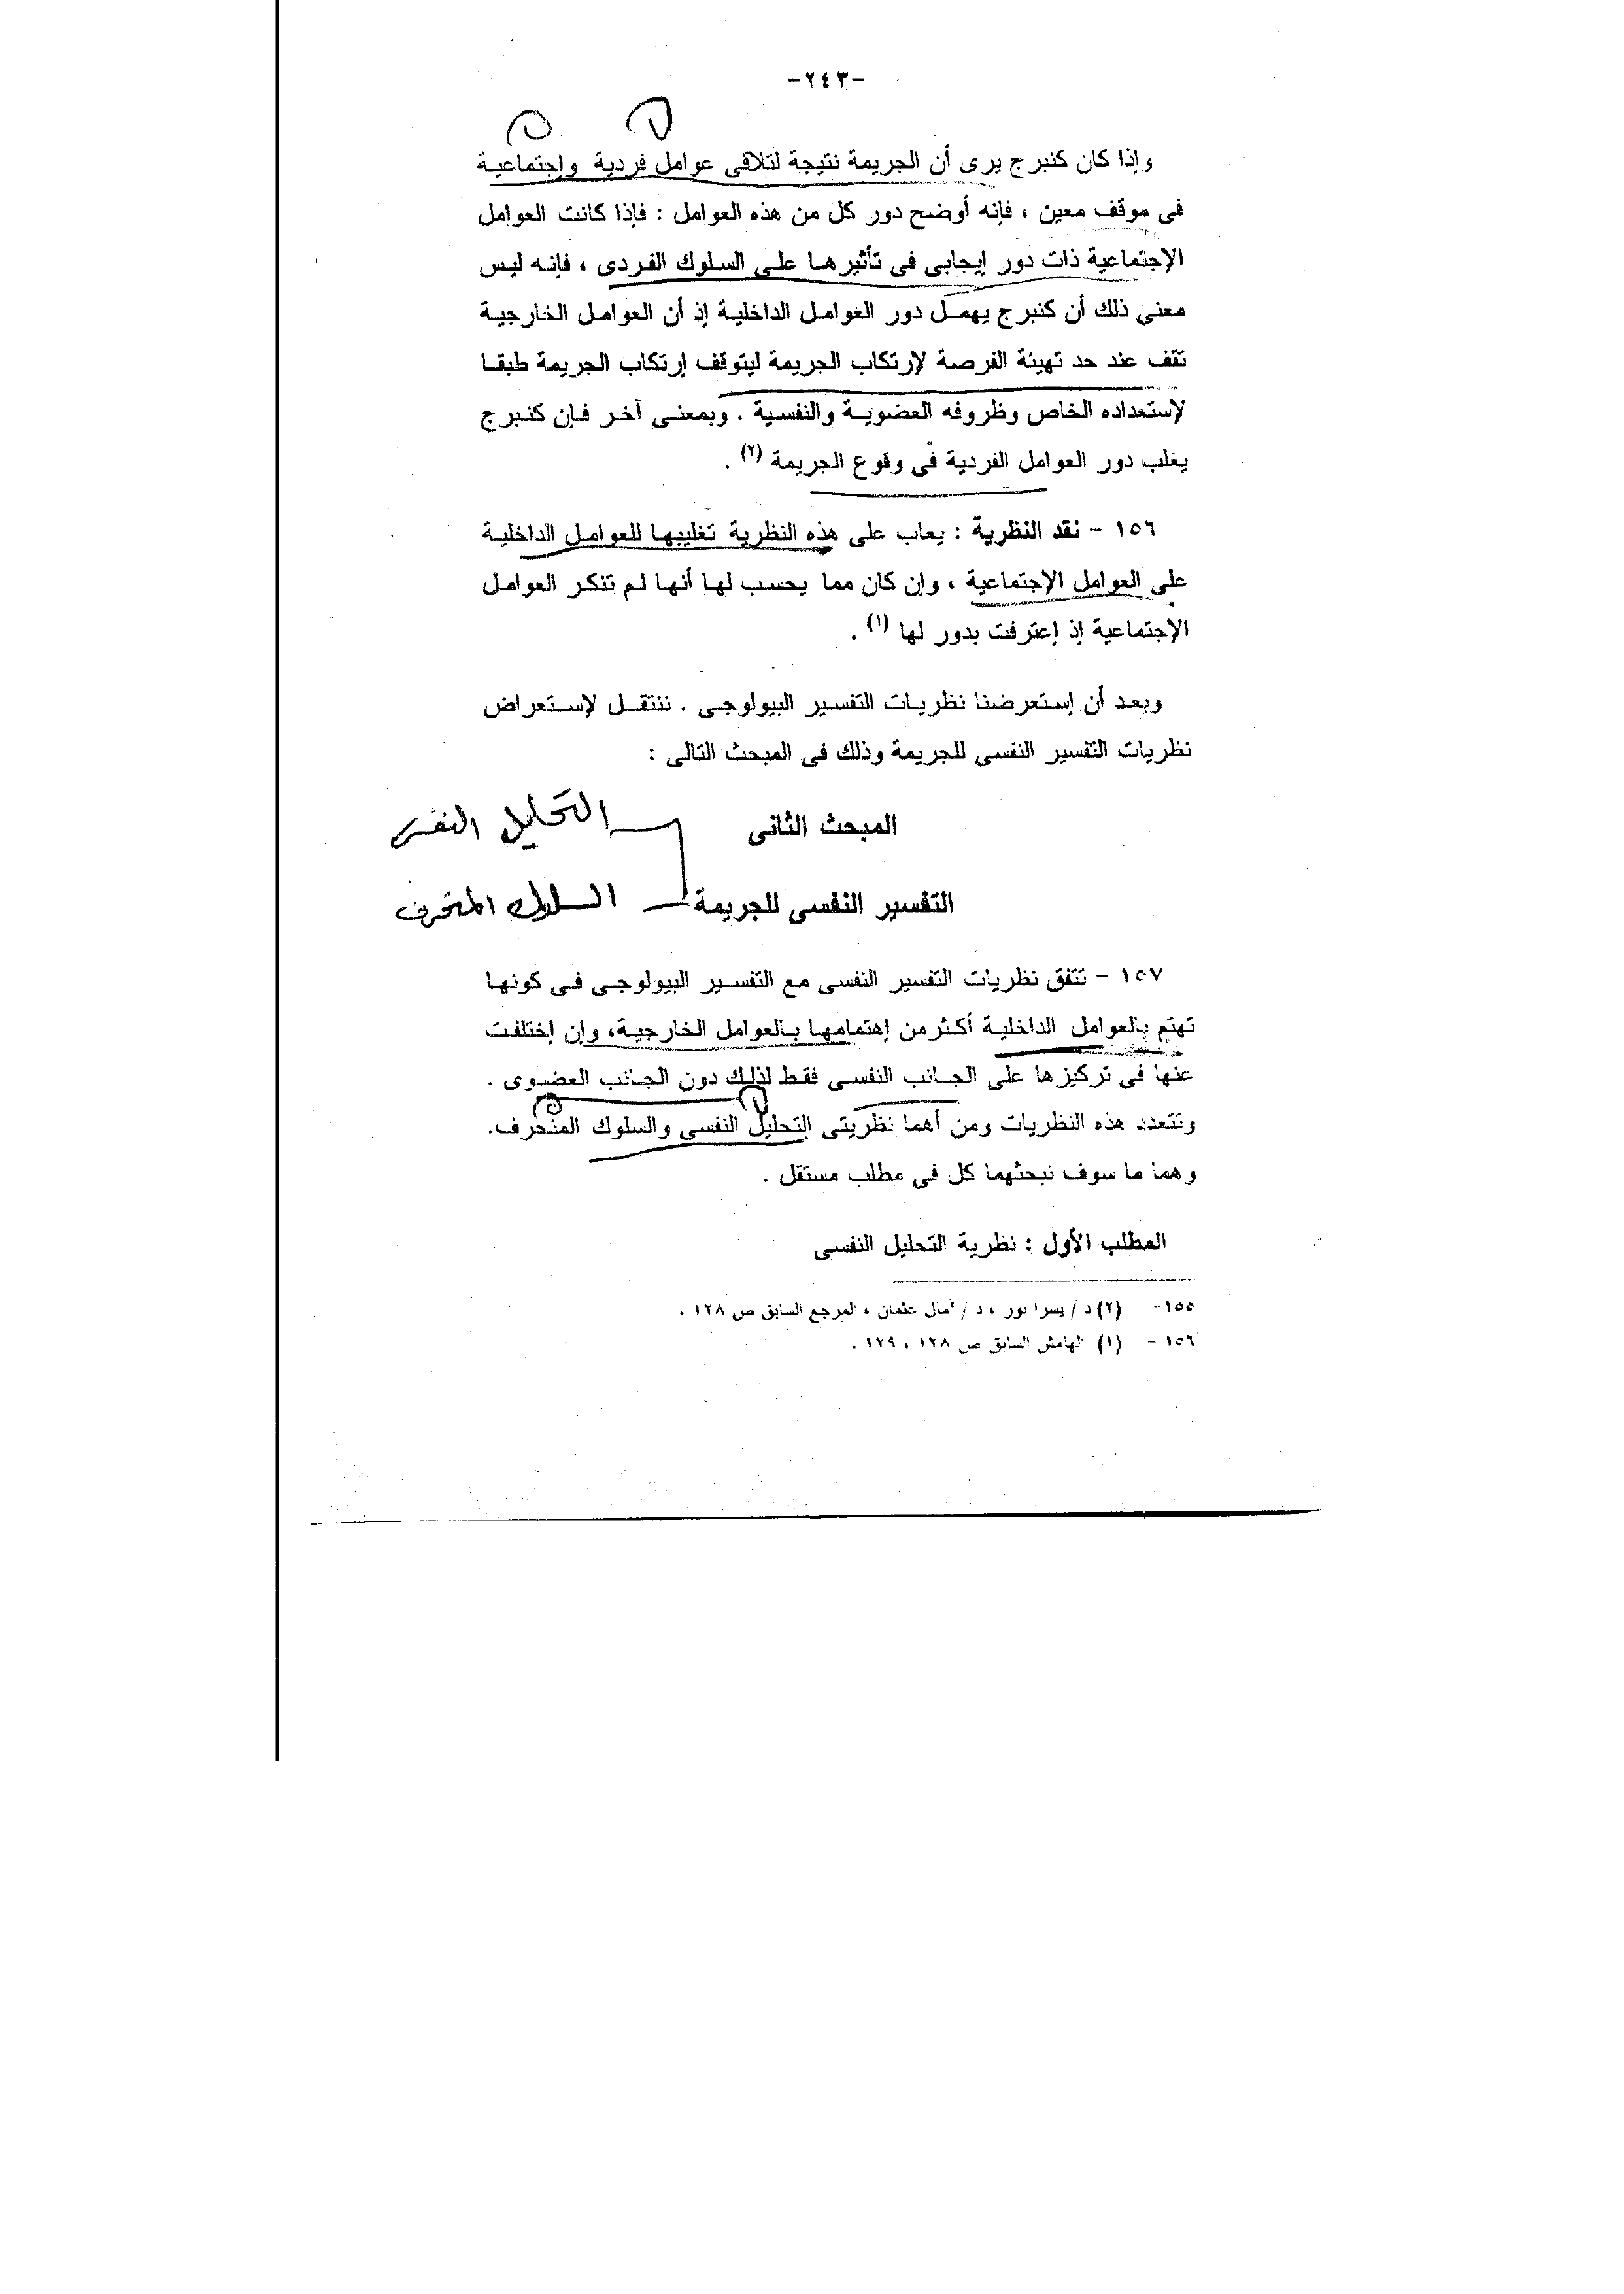 -٢٤٣-
وإذا كان كنبرج يرى أن الجريمة نتيجة لتلاقى عوامل فردية وإجتماعية
فى موقف معين ، فإنه أوضح دور كل من هذه العوامل : فإذا كانت العوامل
الإجتماعية ذات دور إيجابى فى تأثيرها على السلوك الفردى ، فإنه ليس
معنى ذلك أن كنبرج يهمل دور العوامل الداخلية إذ أن العوامل الخارجية
تقف عند حد تهيئة الفرصة لإرتكاب الجريمة ليتوقف إرتكاب الجريمة طبقا
لإستعداده الخاص وظروفه العضوية والنفسية . وبمعنى آخر فإن كنبرج
يغلب دور العوامل الفردية فى وقوع الجريمة (٢) .
١٥٦ - نقد النظرية : يعاب على هذه النظرية تغليبها للعوامل الداخلية
على العوامل الإجتماعية ، وإن كان مما يحسب لها أنها لم تنكر العوامل
الإجتماعية إذ إعترفت بدور لها (١) .
وبعد أن إستعرضنا نظريات التفسير البيولوجى . ننتقل لإستعراض
نظريات التفسير النفسى للجريمة وذلك فى المبحث التالى :
المبحث الثانى
التحليل النفسى
التفسير النفسى للجريمة
السلوك المنحرف
١٥٧ - تتفق نظريات التفسير النفسى مع التفسير البيولوجى فى كونها
تهتم بالعوامل الداخلية أكثر من إهتمامها بالعوامل الخارجية، وإن إختلفت
عنها فى تركيزها على الجانب النفسى فقط لذلك دون الجانب العضوى .
وتتعدد هذه النظريات ومن أهما نظريتى التحليل النفسى والسلوك المنحرف.
وهما ما سوف نبحثهما كل فى مطلب مستقل .
المطلب الأول : نظرية التحليل النفسى
١٥٥- (٢) د / يسرا نور ، د / آمال عثمان ، المرجع السابق ص ١٢٨ .
١٥٦ - (١) الهامش السابق ص ١٢٨ ، ١٢٩ .